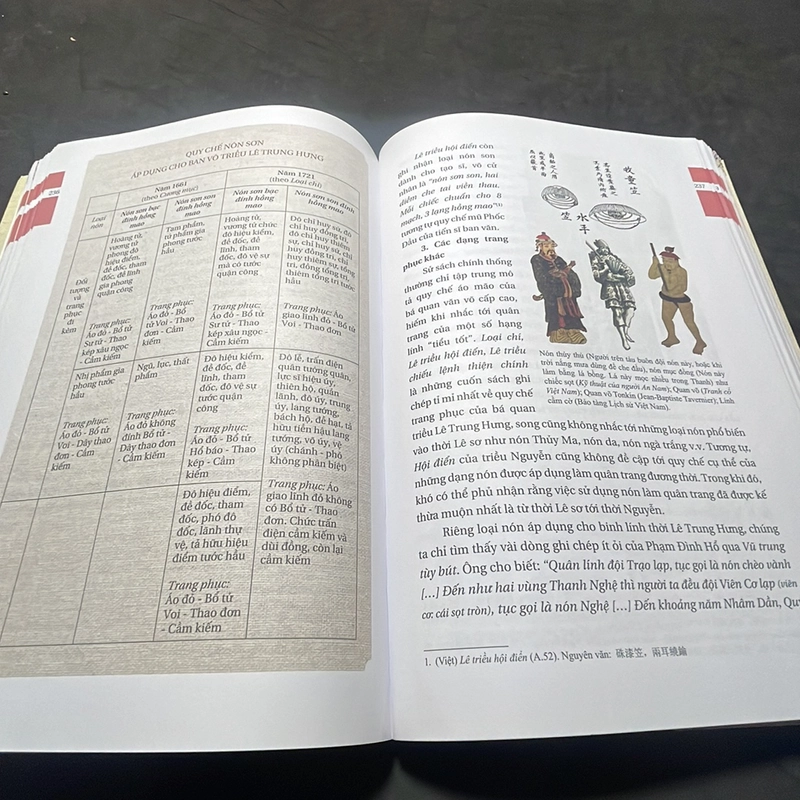 236
QUY CHẾ NÓN SƠN
ÁP DỤNG CHO BAN VÕ TRIỀU LÊ TRUNG HƯNG
Năm 1661
(theo Cương mục)
Năm 1721
(theo Loại chí)
Loại
nón
Nón sơn bạc
đính hồng
mao
Nón sơn son
đính hồng
mao
Nón sơn bạc
đính hồng
mao
Nón sơn son đính
hồng mao
Đối
tượng
và
trang
phục
đi
kèm
Hoàng tử,
vương tử
phong đô
hiệu điểm,
đề đốc, tham
đốc, đề lĩnh
gia phong
quận công
Trang phục:
Áo đỏ - Bổ tử
Sư tử - Thao
kép xâu ngọc
- Cầm kiếm
Tam phẩm,
tứ phẩm gia
phong tước
hầu
Trang phục:
Áo đỏ - Bổ
tử Voi - Thao
đơn - Cầm
kiếm
Hoàng tử,
vương tử chức
đô hiệu điểm,
đề đốc, đề
lĩnh, tham
đốc, đô vệ sự
mà có tước
quận công
Trang phục:
Áo đỏ - Bổ tử
Sư tử - Thao
kép xâu ngọc -
Cầm kiếm
Đô chỉ huy sứ, đô
chỉ huy đồng tri,
đô chỉ huy thiêm
sự, chỉ huy sứ, chỉ
huy đồng tri, chỉ
huy thiêm sự, tổng
tri, đồng tổng tri,
thiêm tổng tri tước
hầu
Trang phục: Áo
giao lĩnh đỏ - Bổ tử
Voi - Thao đơn
Nhị phẩm gia
phong tước
hầu
Trang phục:
Áo đỏ - Bổ tử
Voi - Dây thao
đơn - Cầm
kiếm
Ngũ, lục, thất
phẩm
Trang phục:
Áo đỏ không
đính Bổ tử -
Dây thao đơn
- Cầm kiếm
Đô hiệu điểm,
đề đốc, đề
lĩnh, tham
đốc, đô vệ sự
tước quận
công
Trang phục:
Áo đỏ - Bổ tử
Hổ báo - Thao
kép - Cầm
kiếm
Đô lễ, trấn điện
tướng quân,
lực sĩ hiệu úy,
thiên hộ, quản
lãnh, đô úy, trung
úy, lang tướng,
bách hộ, đề hạt, tả
hữu tiền hậu lang
tướng, võ úy, vệ
úy (chánh - phó
không phân biệt)
Đô hiệu điểm,
đề đốc, tham
đốc, phó đô
đốc, lãnh thự
vệ, tả hữu hiệu
điểm tước hầu
Trang phục:
Áo đỏ - Bổ tử
Voi - Thao đơn
- Cầm kiếm
Trang phục: Áo
giao lĩnh đỏ không
có Bổ tử - Thao
đơn. Chức trấn
điện cầm kiếm và
dùi đồng, còn lại
cầm kiếm
237
Lê triều hội điển còn
ghi nhận loại nón sơn
dành cho tạo sĩ, võ cử
nhân là "nón sơn son, hai
điểm che tai viền thau.
Mỗi chiếc chuẩn cho 8
mạch, 3 lạng hồng mao"¹
tương tự quy chế mũ Phốc
Đầu của tiến sĩ ban văn.
3. Các dạng trang
phục khác
Sử sách chính thống
thường chỉ tập trung mô
tả quy chế áo mão của
bá quan văn võ cấp cao,
hiếm khi nhắc tới quân
trang của một số hạng
lính "tiểu tốt". Loại chí,
Lê triều hội điển, Lê triều
chiếu lệnh thiện chính
là những cuốn sách ghi
chép tỉ mỉ nhất về quy chế
trang phục của bá quan
牧童笠
水手
笠
Nón thủy thủ (Người trên tàu buôn đội nón này, hoặc khi
trời nắng mưa dùng để che đầu), nón mục đồng (Nón này
làm bằng lá bồng. Lá này mọc nhiều trong Thanh) như
chiếc sọt (Kỹ thuật của người An Nam), Quan võ (Tranh cổ
Việt Nam); Quan võ Tonkin (Jean-Baptiste Tavernier), Lính
cầm cờ (Bảo tàng Lịch sử Việt Nam).
triều Lê Trung Hưng, song cũng không nhắc tới những loại nón phổ biến
vào thời Lê sơ như nón Thủy Ma, nón da, nón ngà trắng v.v. Tương tự,
Hội điển của triều Nguyễn cũng không đề cập tới quy chế cụ thể của
những dạng nón được áp dụng làm quân trang đương thời. Trong khi đó,
khó có thể phủ nhận rằng việc sử dụng nón làm quân trang đã được kế
thừa muộn nhất là từ thời Lê sơ tới thời Nguyễn.
Riêng loại nón áp dụng cho binh lính thời Lê Trung Hưng, chúng
ta chỉ tìm thấy vài dòng ghi chép ít ỏi của Phạm Đình Hổ qua Vũ trung
tùy bút. Ông cho biết: "Quân lính đội Trạo lạp, tục gọi là nón chèo vành
[...] Đến như hai vùng Thanh Nghệ thì người ta đều đội Viên Cơ lạp (viên
cơ: cái sọt tròn), tục gọi là nón Nghệ [...] Đến khoảng năm Nhâm Dần, Quý
1. (Việt) Lê triều hội điển (A.52). Nguyên văn: 硃漆笠，兩耳繞鍮